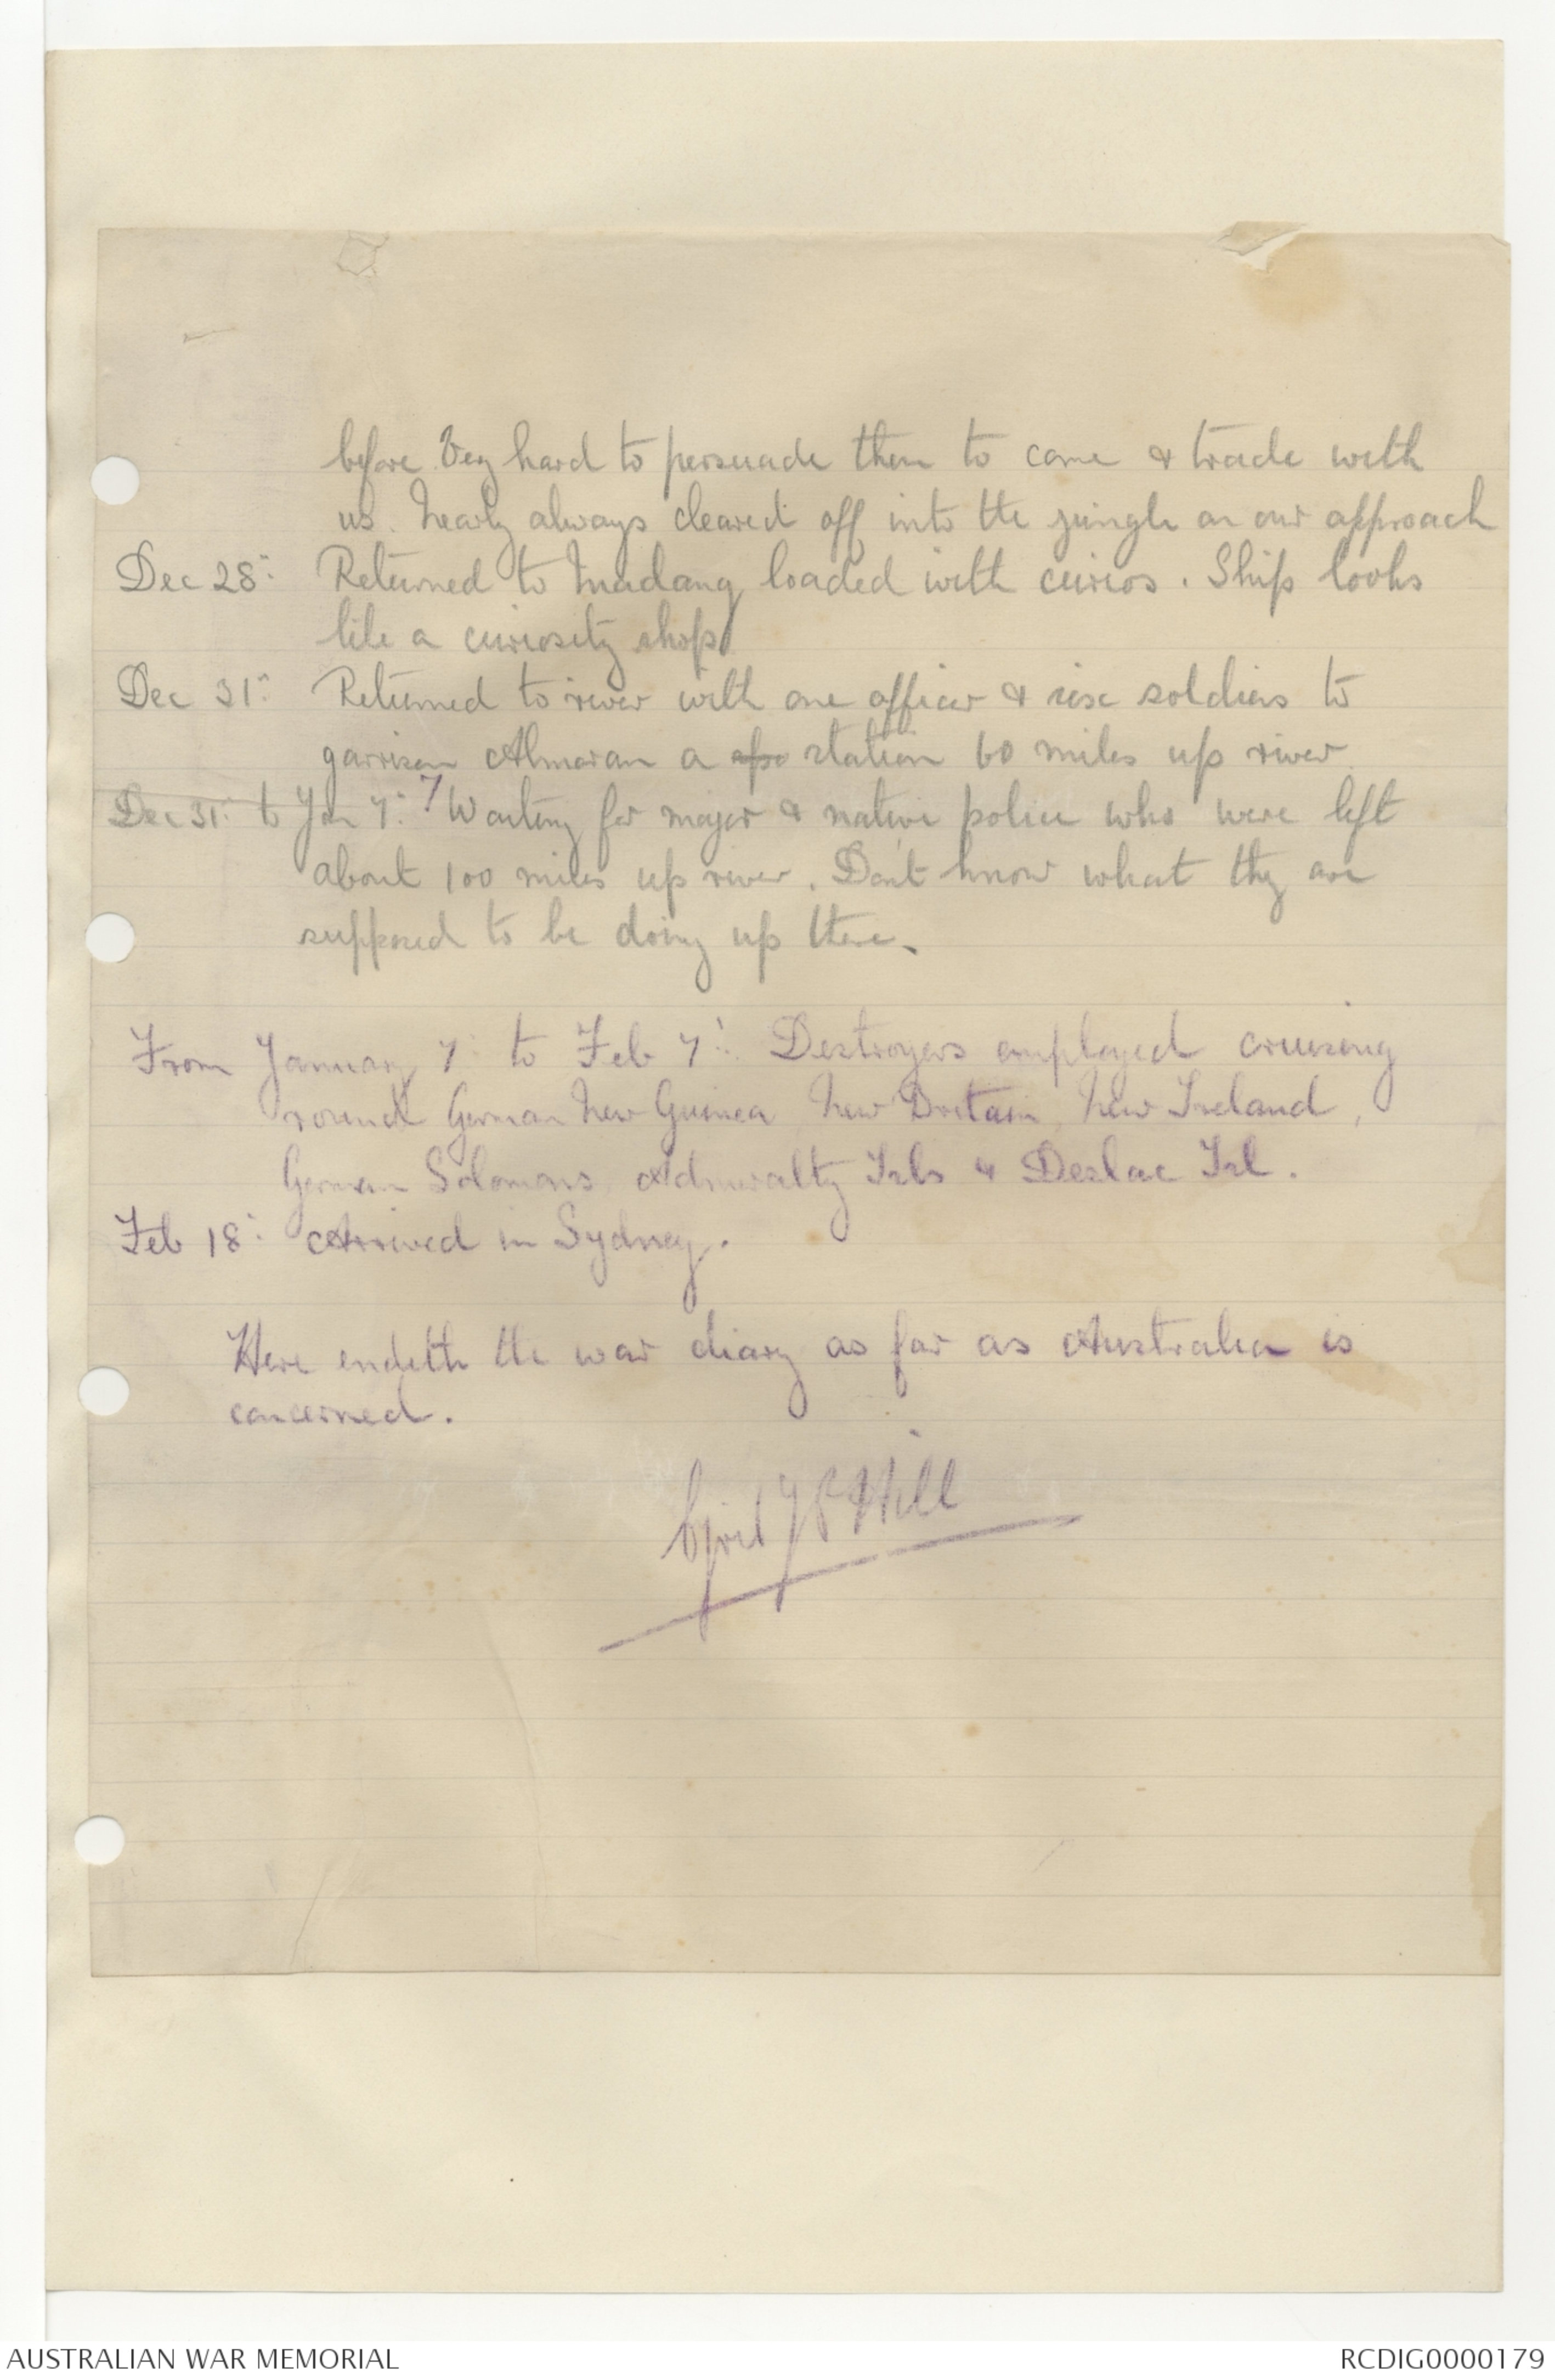 before. Very hard to persuade them to come & trade with
us. Nearly always cleared off into the jungle on our approach
Dec 28th Returned to Madang loaded with curios. Ship looks
like a curiosity shop
Dec 31st Returned to river with one officer & six soldiers to
garrison Almoran a station 60 miles up river.
Dec 31st to Jan 7th 7 Waiting for major & native police who were left
about 100 miles up river. Don't know what they are
supposed to be doing up there.
From January 7th to Feb 7th. Destroyers employed cruising
round German New Guinea, New Britain, New Ireland,
German Solomons, Admiralty Isls & Deslac Isl.
Feb 18th Arrived in Sydney.
Here endeth the war diary as far as Australia is
concerned.
Cyril J P Hill
AUSTRALIAN WAR MEMORIAL
RCDIG0000179